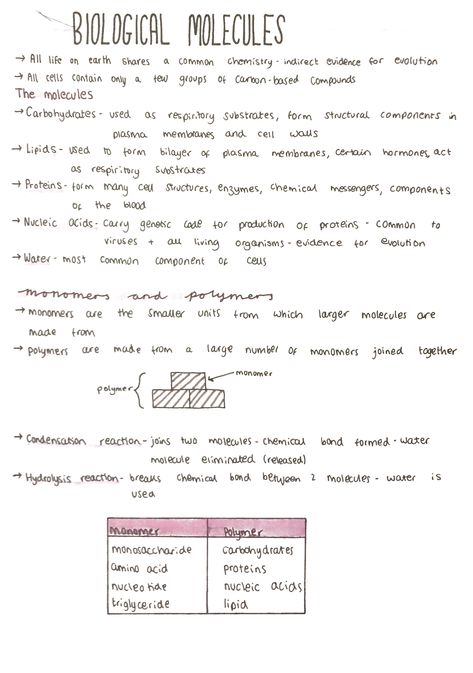 BIOLOGICAL MOLECULES
→ All life on earth shares a common chemistry - indirect evidence for evolution
→ All cells contain only a few groups of carbon-based compounds
The molecules
→ Carbohydrates - used as respiritory substrates, form structural components in
plasma membranes and cell walls
→ Lipids - used to form bilayer of plasma membranes, certain hormones, act
as respiritory substrates
→ Proteins - form many cell structures, enzymes, chemical messengers, components
of the blood
→ Nucleic acids - carry genetic code for production of proteins - common to
viruses + all living organisms - evidence for evolution
→ Water - most common component of cells
monomers and polymers
→ monomers are the smaller units from which larger molecules are
made from
→ polymers are made from a large number of monomers joined together
monomer
polymer
→ Condensation reaction - joins two molecules - chemical bond formed - water
molecule eliminated (released)
→ Hydrolysis reaction - breaks chemical bond between 2 molecules - water is
used
Monomer Polymer
monosaccharide carbohydrates
amino acid proteins
nucleotide nucleic acids
triglyceride lipid